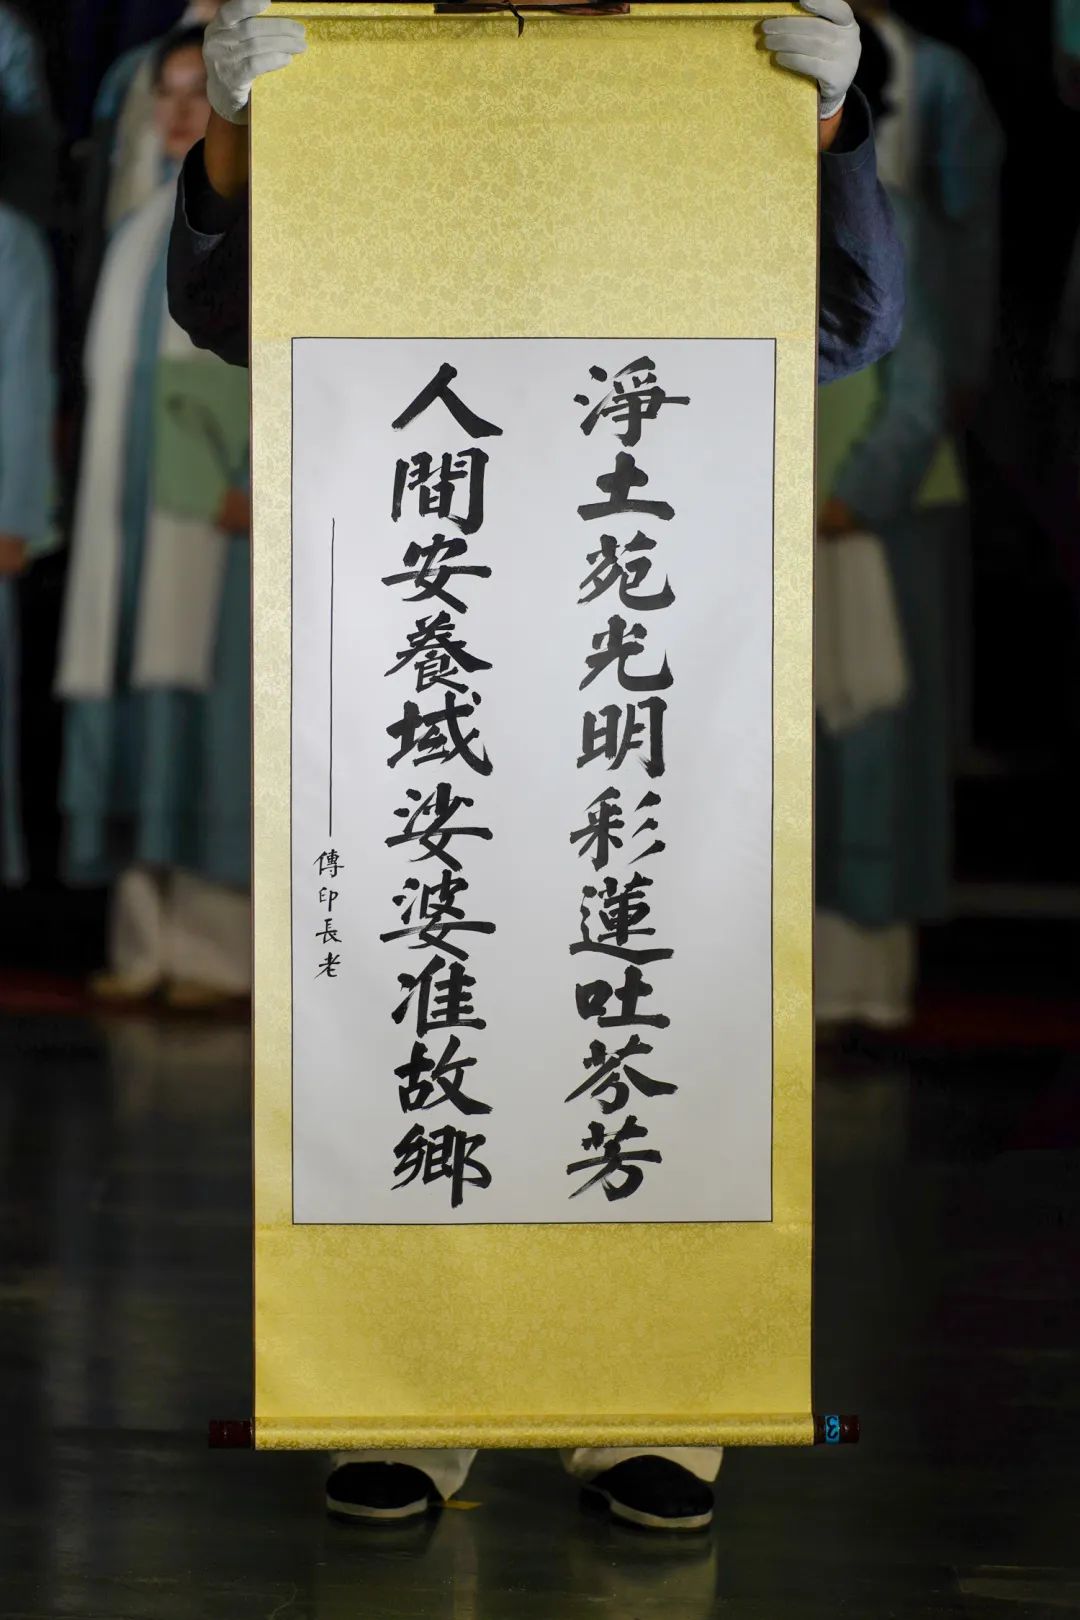 淨土苑光明彩蓮吐芬芳
人間安養域娑婆准故鄉
傳印長老